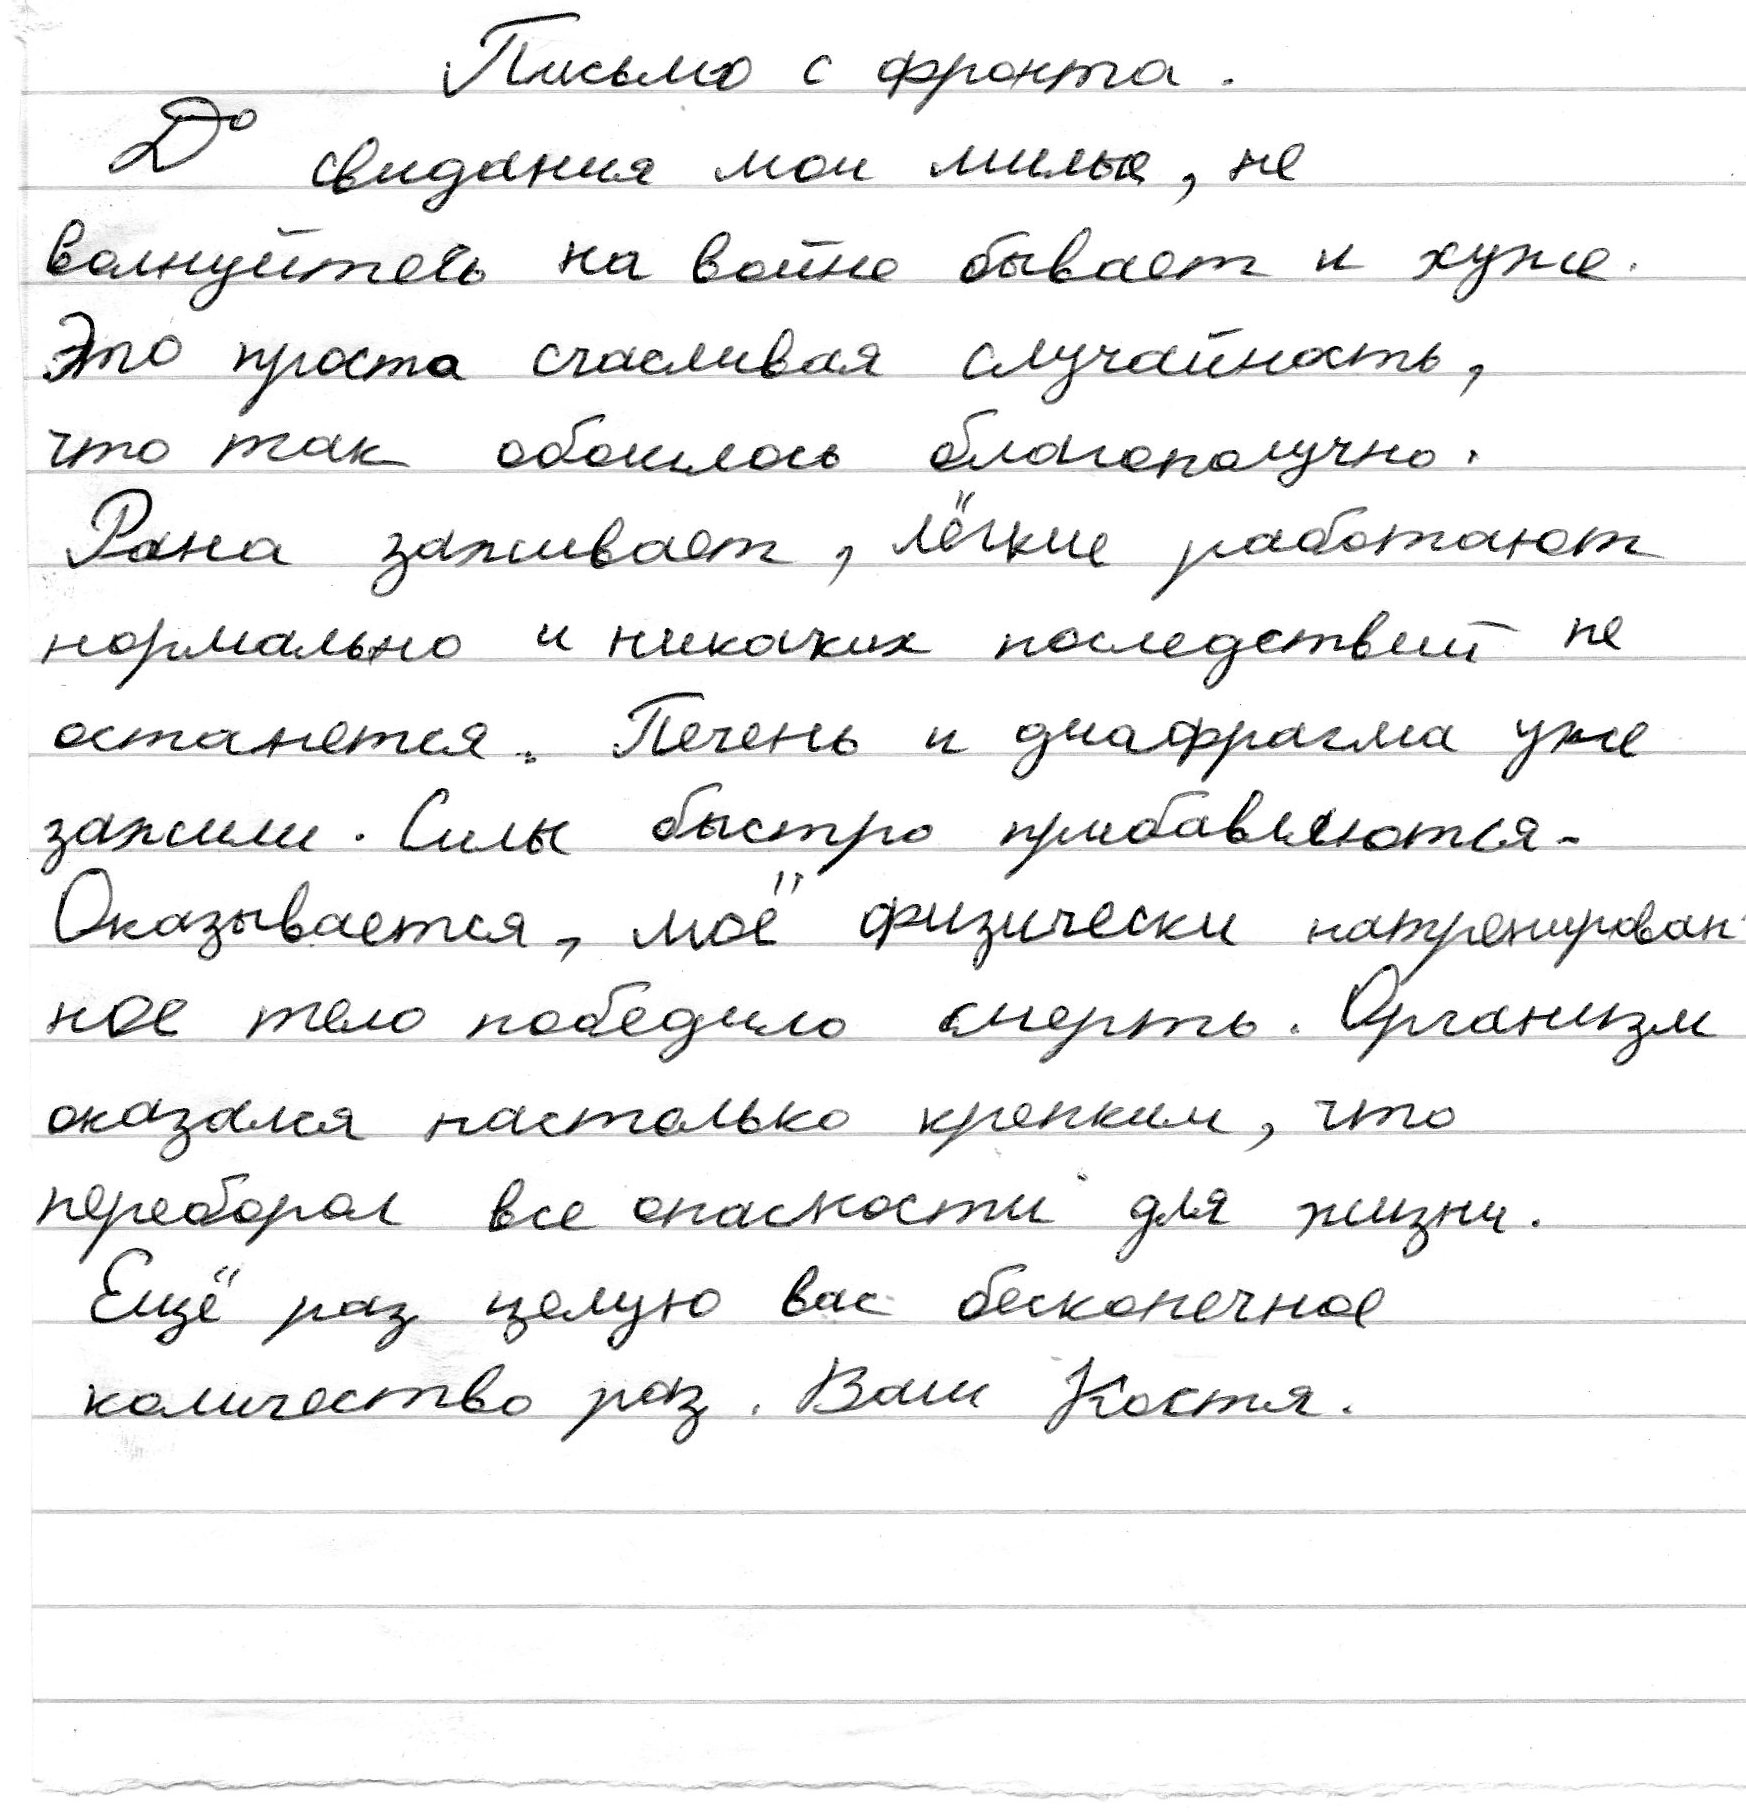 Письмо с фронта.
До свидания мои милые, не
волнуйтесь на войне бывает и хуже.
Это проста счасливая случайность,
что так обошлось благополучно.
Рана заживает, лёгкие работают
нормально и никаких последствий не
останется. Печень и диафрагма уже
зажили. Силы быстро прибавляются.
Оказывается, моё физически натренирован-
ное тело победило смерть. Организм
оказался настолько крепким, что
переборол все опасности для жизни.
Ещё раз целую вас бесконечное
количество раз. Ваш Костя.